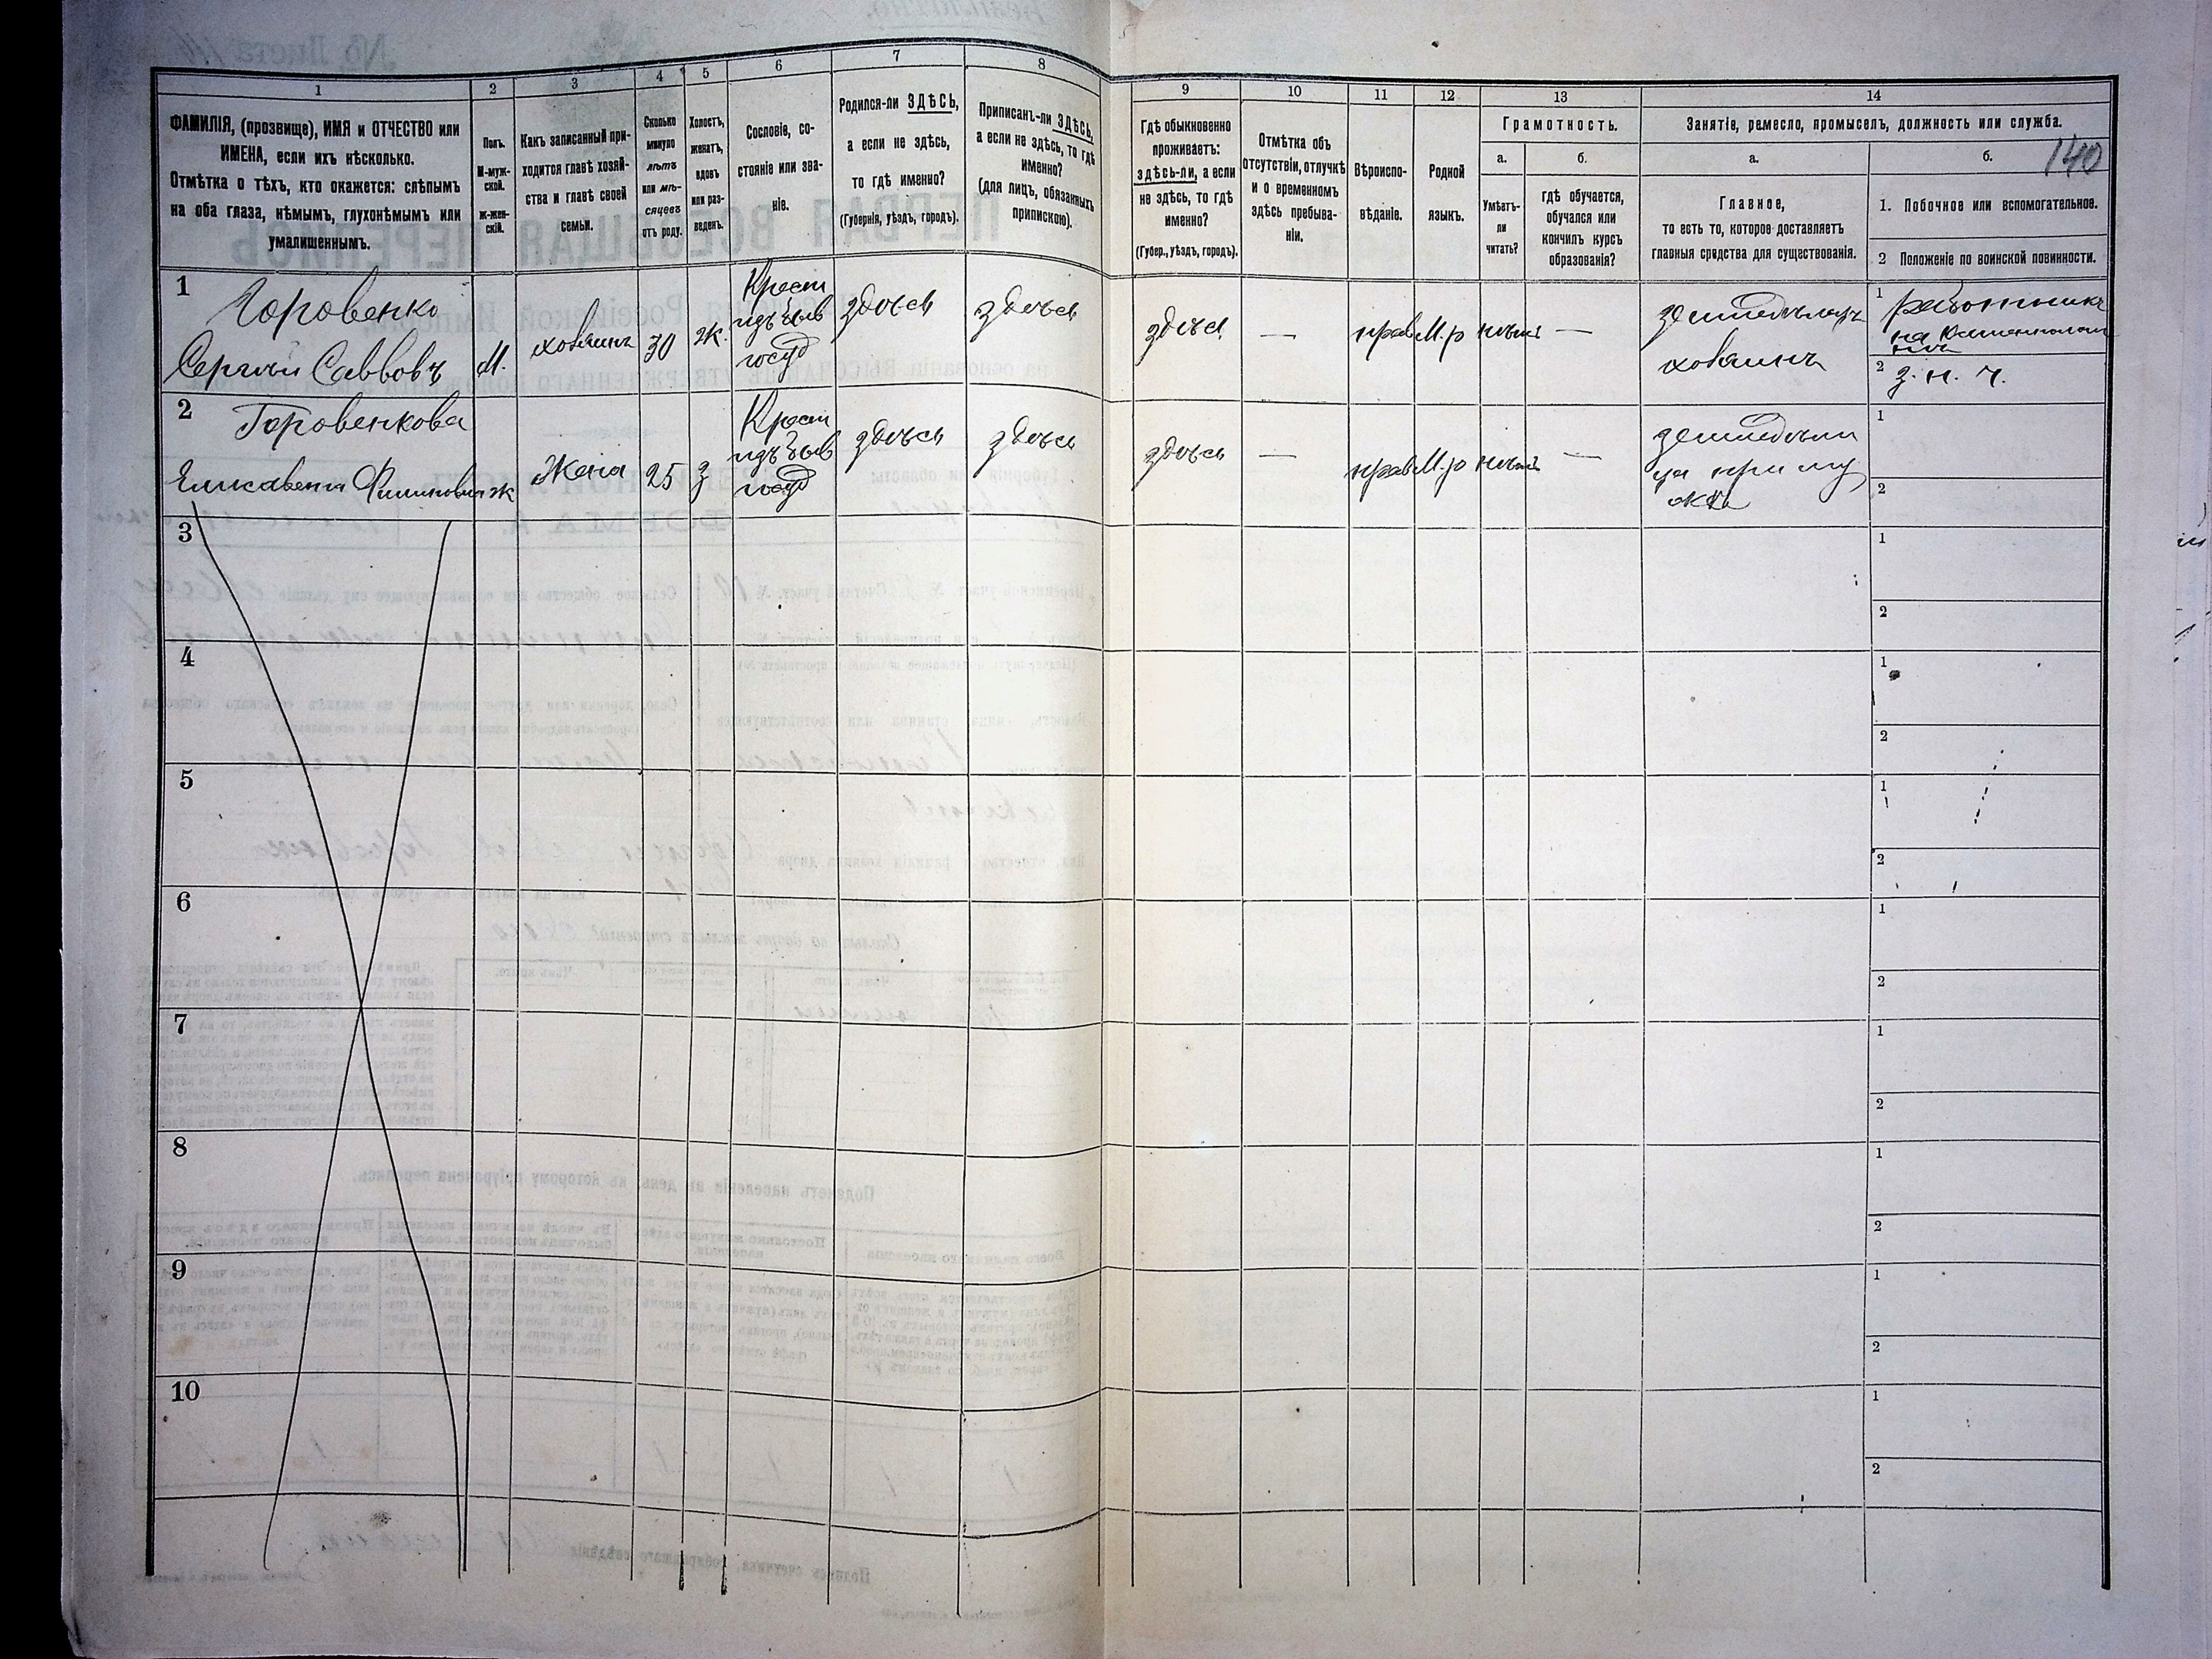 1
2
3
4
5
6
7
8
9
10
11
12
13
14
ФАМИЛІЯ, (прозвище), ИМЯ и ОТЧЕСТВО или
ИМЕНА, если ихъ нѣсколько.
Отмѣтка о тѣхъ, кто окажется: слѣпымъ
на оба глаза, нѣмымъ, глухонѣмымъ или
умалишеннымъ.
Полъ.
М-муж-
ской.
Ж-жен-
скій.
Какъ записанный при-
ходится главѣ хозяй-
ства и главѣ своей
семьи.
Сколько
минуло
лѣтъ
или мѣ-
сяцевъ
отъ роду.
Холостъ,
женатъ,
вдовъ
или раз-
веденъ.
Сословіе, со-
стояніе или зва-
ніе.
Родился-ли ЗДѢСЬ,
а если не здѣсь,
то гдѣ именно?
(Губернія, уѣздъ, городъ).
Приписанъ-ли ЗДѢСЬ,
а если не здѣсь, то гдѣ
именно?
(для лицъ, обязанныхъ
припискою).
Гдѣ обыкновенно
проживаетъ:
здѣсь-ли, а если
не здѣсь, то гдѣ
именно?
(Губер., уѣздъ, городъ).
Отмѣтка объ
отсутствіи, отлучкѣ
и о временномъ
здѣсь пребыва-
ніи.
Вѣроиспо-
вѣданіе.
Родной
языкъ.
Грамотность.
а.
б.
Умѣетъ-
ли
читать?
гдѣ обучается,
обучался или
кончилъ курсъ
образованія?
Занятіе, ремесло, промыселъ, должность или служба.
а.
б.
140
Главное,
то есть то, которое доставляетъ
главныя средства для существованія.
1. Побочное или вспомогательное.
2 Положеніе по воинской повинности.
1
Горовенко
Сергѣй Саввовъ
М.
хозяинъ
30
ж.
Крест
изъ быв
госуд
здѣсь
здѣсь
здѣсь
—
прав
М.р
нѣтъ
—
хозяинъ
1 работникъ
на
2 з. н. ч.
2
Горовенкова
Елисавета
ж
Жена
25
з
Крест
изъ быв
госуд
здѣсь
здѣсь
здѣсь
—
прав
М.р
нѣтъ
—
при му
жѣ
1
2
3
1
2
4
1
2
5
1
2
6
1
2
7
1
2
8
1
2
9
1
2
10
1
2